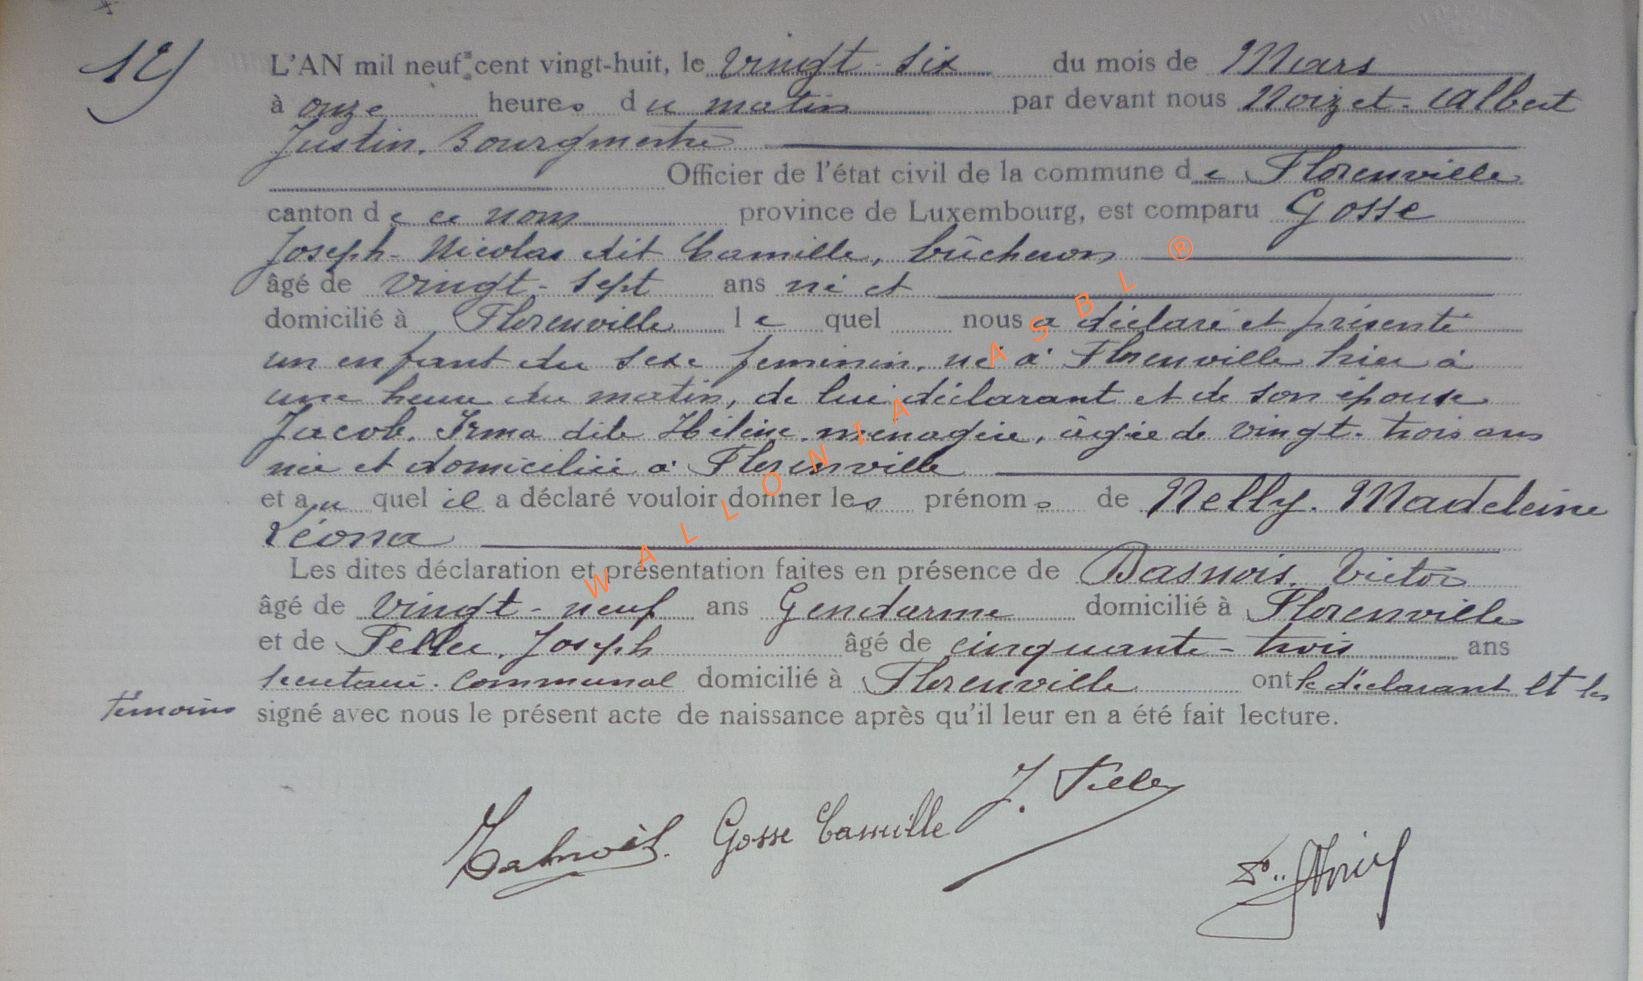 L'AN mil neuf cent vingt-huit, le vingt-six du mois de Mars
à onze heures du matin par devant nous Noizet. Albert
Justin. Bourgmestre
Officier de l'état civil de la commune de Florenville
canton de ce nom province de Luxembourg, est comparu Gosse
Joseph-Nicolas dit Camille, bûcheron
âgé de vingt-sept ans né et
domicilié à Florenville le quel nous a déclaré et présenté
un enfant du sexe feminin, né à Florenville hier à
une heure du matin, de lui déclarant et de son épouse
Jacob. Irma dite Hélène. ménagère, âgée de vingt-trois ans
née et domiciliée à Florenville
et au quel il a déclaré vouloir donner les prénoms de Nelly. Madeleine
Léona
Les dites déclaration et présentation faites en présence de Basnois. Victor
âgé de vingt-neuf ans Gendarme domicilié à Florenville
et de Feller. Joseph âgé de cinquante-trois ans
secrétaire. communal domicilié à Florenville ont le déclarant et les
témoins signé avec nous le présent acte de naissance après qu'il leur en a été fait lecture.
Gosse Camille J. Feller
WALLONIA ASBL ®